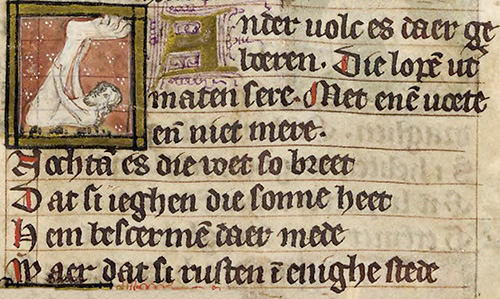 Ander volc es daer ge
boren. Die lopē utꝰ
maten sere. Met enē voete
eñ niet mere.
Nochtā es die voet so breet
Dat si ieghen die sonne heet
Hem bescermē daer mede
Waer dat si rusten ī enighe stede